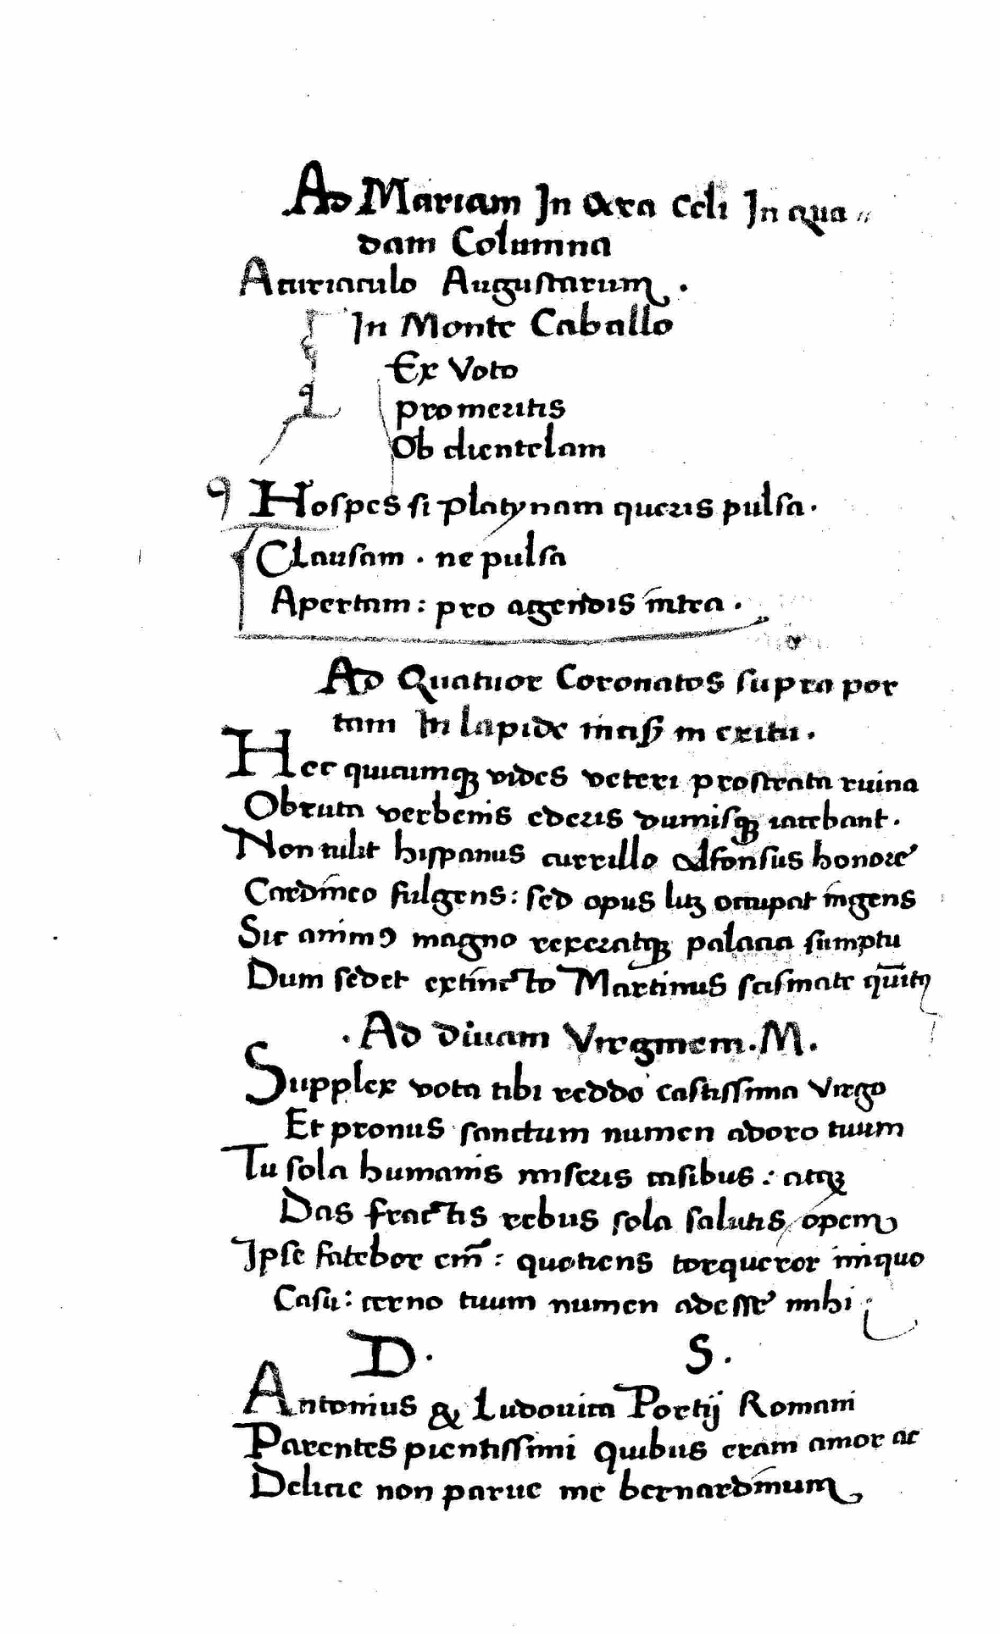 Ad Mariam In Ara Celi In qua〃
dam Columna
Acuriaculo Augustarum.
In Monte Caballo
Ex Voto
promeritis
Ob clientelam
Hospes si platynam queris pulsa.
Clausam. ne pulsa
Apertam: pro agendis intra.
Ad Quatuor Coronatos supra por
tam In lapide incisis in exitu.
Hec quicumqꝫ vides veteri prostrata ruina
Obruta verbenis ederis dumisqꝫ iacebant.
Non tulit hispanus carrillo Alfonsus honore
Cardineo fulgens: sed opus licꝫ occupat ingens
Sic animꝰ magno reperatqꝫ palacia sumptu
Dum sedet extincto Martinus scismate quīto
. Ad diuam Virginem. M.
Supplex vota tibi reddo castissima Virgo
Et pronus sanctum numen adoro tuum
Tu sola humanis miseris casibus: atqꝫ
Das fractis rebus sola salutis opem
Ipse fatebor em̄: quotiens torqueror iniquo
Casu: cerno tuum numen adesse mihi
D. S.
Antonius & Ludouica Portij Romani
Parentes pientissimi quibus eram amor ac
Delicie non parue me bernardinum